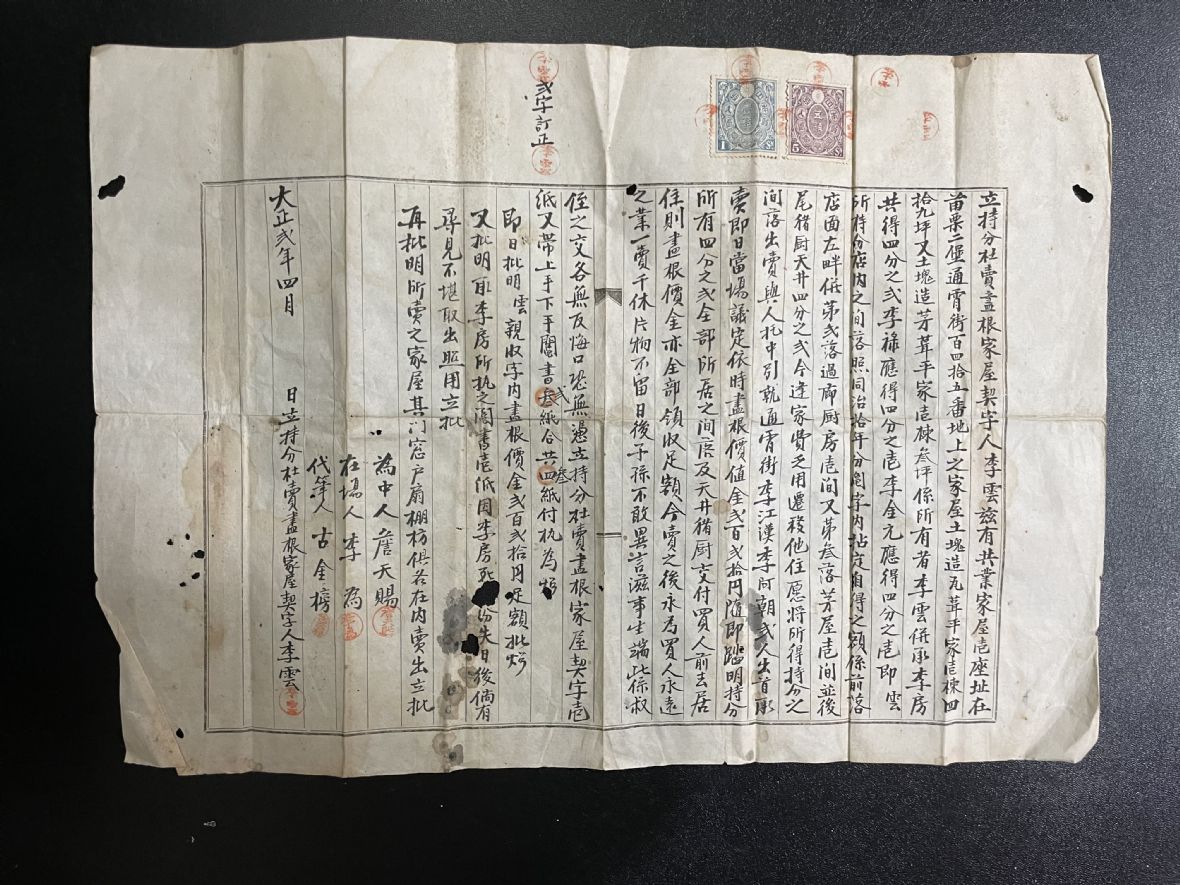 立持分杜賣盡根家屋契字人李雲玆有共業家屋壱座址在
苗栗二堡通霄街百四拾五番地上之家屋土塊造瓦葺平家壱棟四
拾九坪又土塊造茅葺平家壱棟叁坪係所有者李雲併承李房
共得四分之弍李祿應得四分之壱李金元應得四分之壱即雲
所持分店內之間落照同治拾年分鬮字內拈定自得之額係前落
店面左畔併第弍落過廊厨房壱間又第叁落茅屋壱間並後
尾猪厨天井四分之弍今逢家費乏用遷移他住愿將所得持分之
間落出賣與人托中引就通霄街李江漢李阿朝弍人出首承
賣即日當場議定依時盡根價值金弍百弍拾円隨即踏明持分
所有四分之弍全部所居之間落及天井猪厨交付買人前去居
住則盡根價金亦全部領收足額今賣之後永為買人永遠
之業一賣千休片物不留日後子孫不敢異言滋事生端此係叔
侄之交各無反悔口恐無憑立持分杜賣盡根家屋契字壱
紙又帶上手下手鬮書叁弍紙合共四叁紙付执為炤
即日批明雲親收字內盡根價金弍百弍拾円足額批炤
又批明取李房所执之鬮書壱紙因李房死 份失日後倘有
尋見不堪取出照用立批
再批明所賣之家屋其门窓户扇棚枋俱各在內賣出立批
為中人詹天賜
在塲人李為
代筆人古全榜
大正弍年四月 日立持分杜賣盡根家屋契字人李雲
弍字訂正
1 Sn
5 Sn